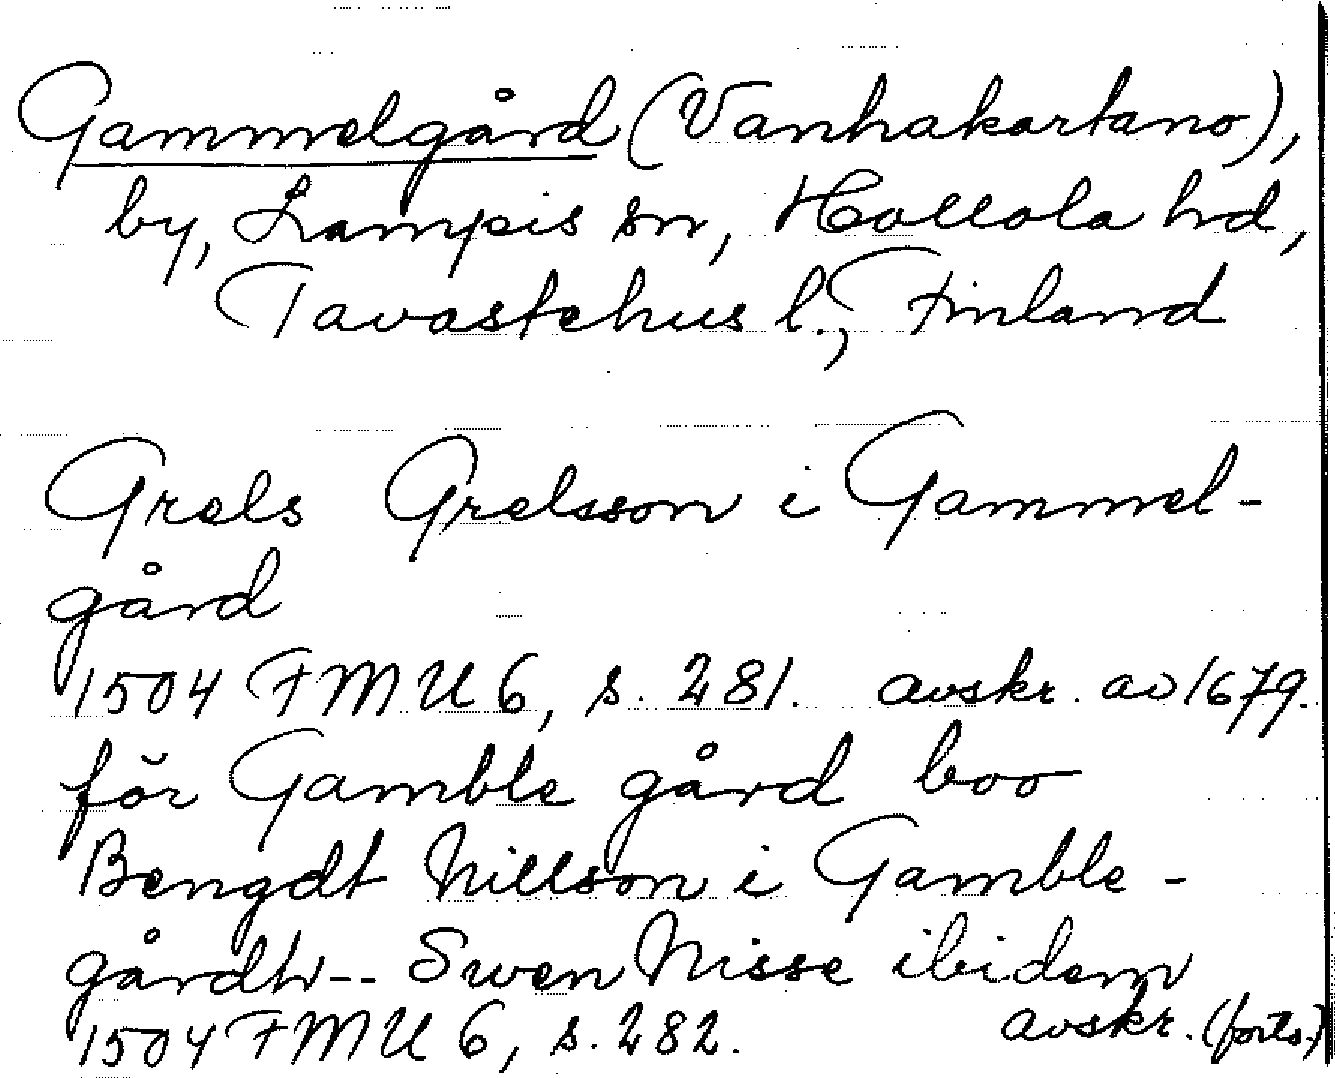 Gammelgård (Vanhakartano),
by, Lampis sn, Hollola hd,
Tavastehus l., Finland
Grels Grelsson i Gammel-
gård
1504 FMU 6, s. 281. avskr. av 1679.
för Gamble gård boo
Bengdt Nillson i Gamble-
gårdh-- Swen Nisse ibidem
1504 FMU 6, s. 282. avskr. (forts.)